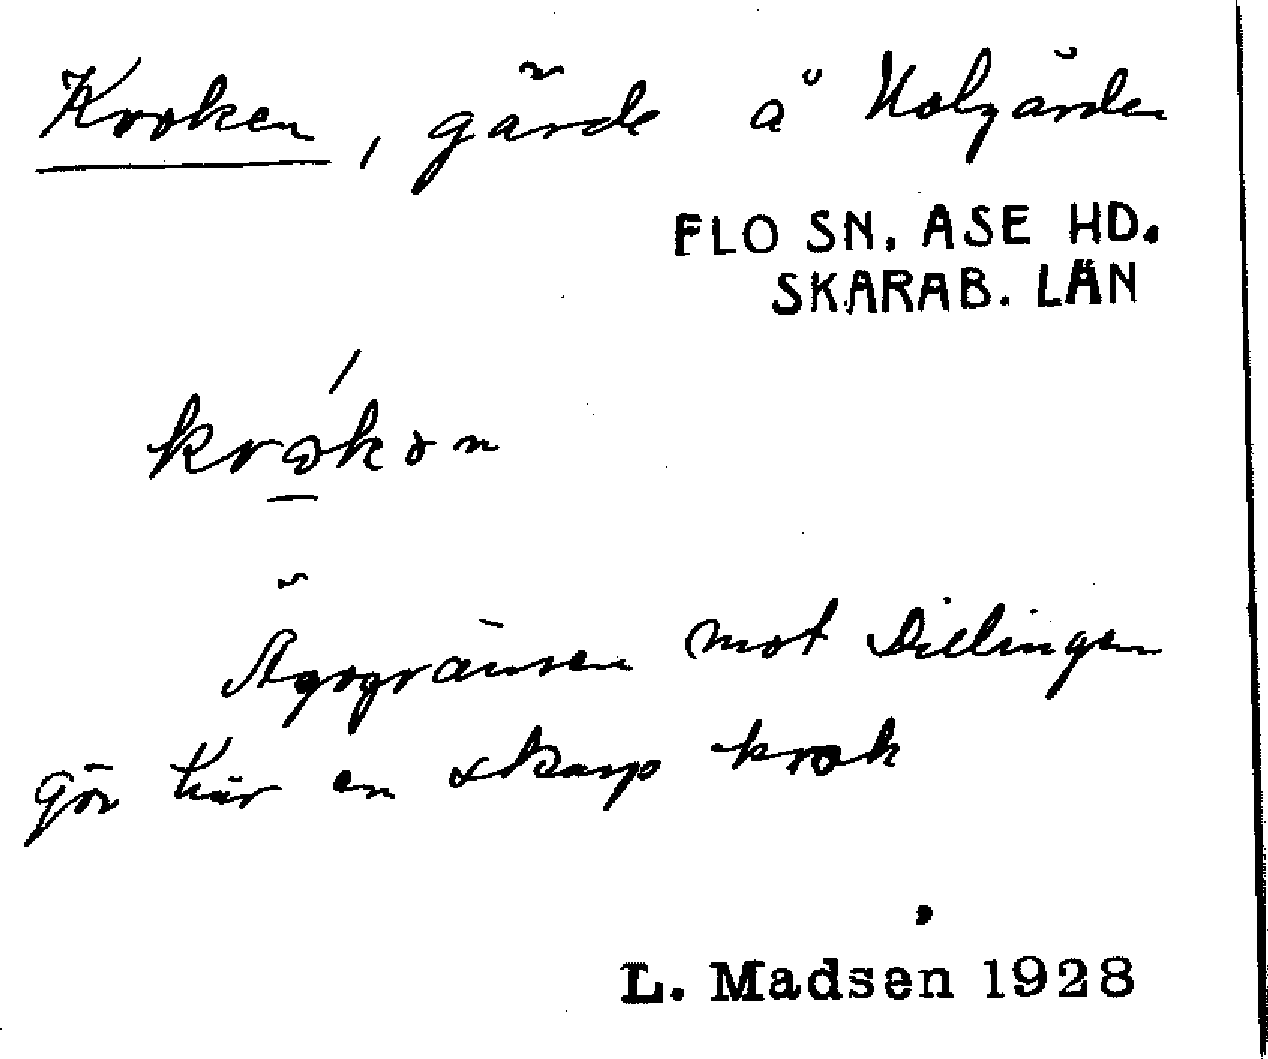 Kroken, gärde å Kolgården
FLO SN. ASE HD.
SKARAB. LÄN
krókən
Ägogränsen mot Dillingen
gör här en skarp krok
L. Madsen 1928